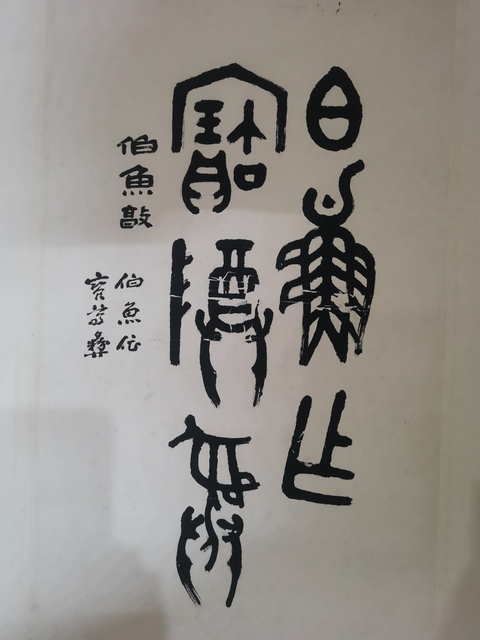 白魚乍
寶𨻵彝
伯魚敦
伯魚作
寶尊彝